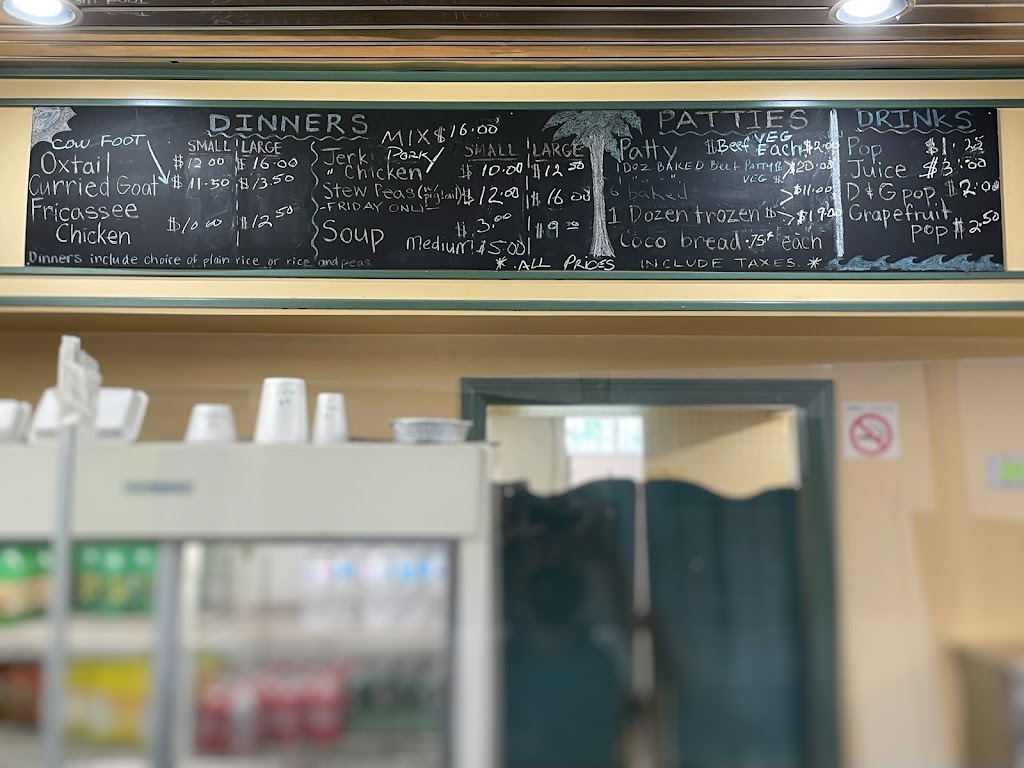 DINNERS
COW FOOT
SMALL LARGE
Oxtail $12.00 $16.00
Curried Goat $11.50 $13.50
Fricassee
Chicken $10.00 $12.50
Dinners include choice of plain rice or rice and peas
MIX $16.00
PORK/ SMALL LARGE
Jerk Chicken $10.00 $12.50
Stew Peas (w/ pigtail) $12.00 $16.00
-FRIDAY ONLY-
Soup $3.00 $9.00
Medium $5.00
* ALL PRICES INCLUDE TAXES *
PATTIES
VEG
Patty $Beef Each $2.00
1 DOZ BAKED Beef Patty
VEG
6 baked $11.00
1 Dozen frozen $19.00
Coco bread .75¢ each
DRINKS
Pop $1.25
Juice $3.00
D & G pop $2.00
Grapefruit
pop $2.50